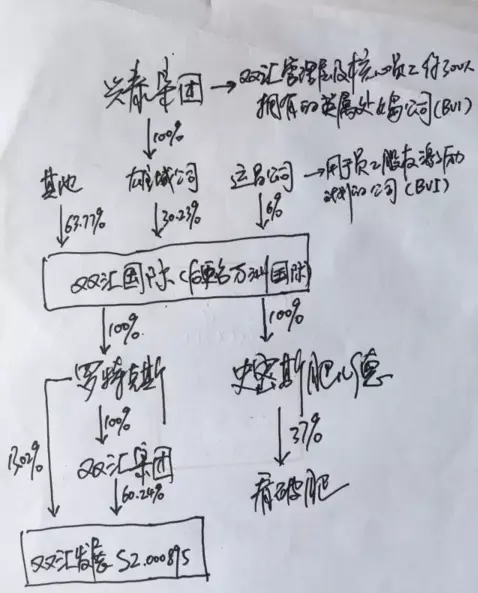 兴泰集团 → 双汇管理层及核心员工约300人
拥有的英属处女岛公司(BVI)
100%
其他 雄域公司 运昌公司 → 用于员工股权激励
计划的公司(BVI)
63.77% 30.23% 6%
双汇国际(后更名万洲国际)
100% 100%
罗特克斯 史密斯菲尔德
13.02% 100% 37%
双汇集团 肯孚肥
60.24%
双汇发展 SZ.000895